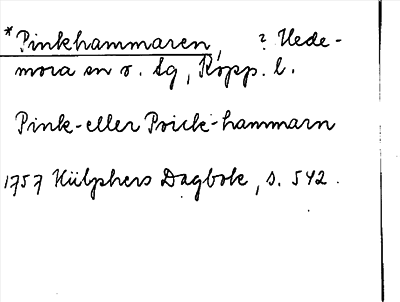 *Pinkhammaren, ? Hede-
mora sn o. Sg, Kopp. l.
Pink- eller Prick-hammarn
1757 Hülphers Dagbok, s. 542.